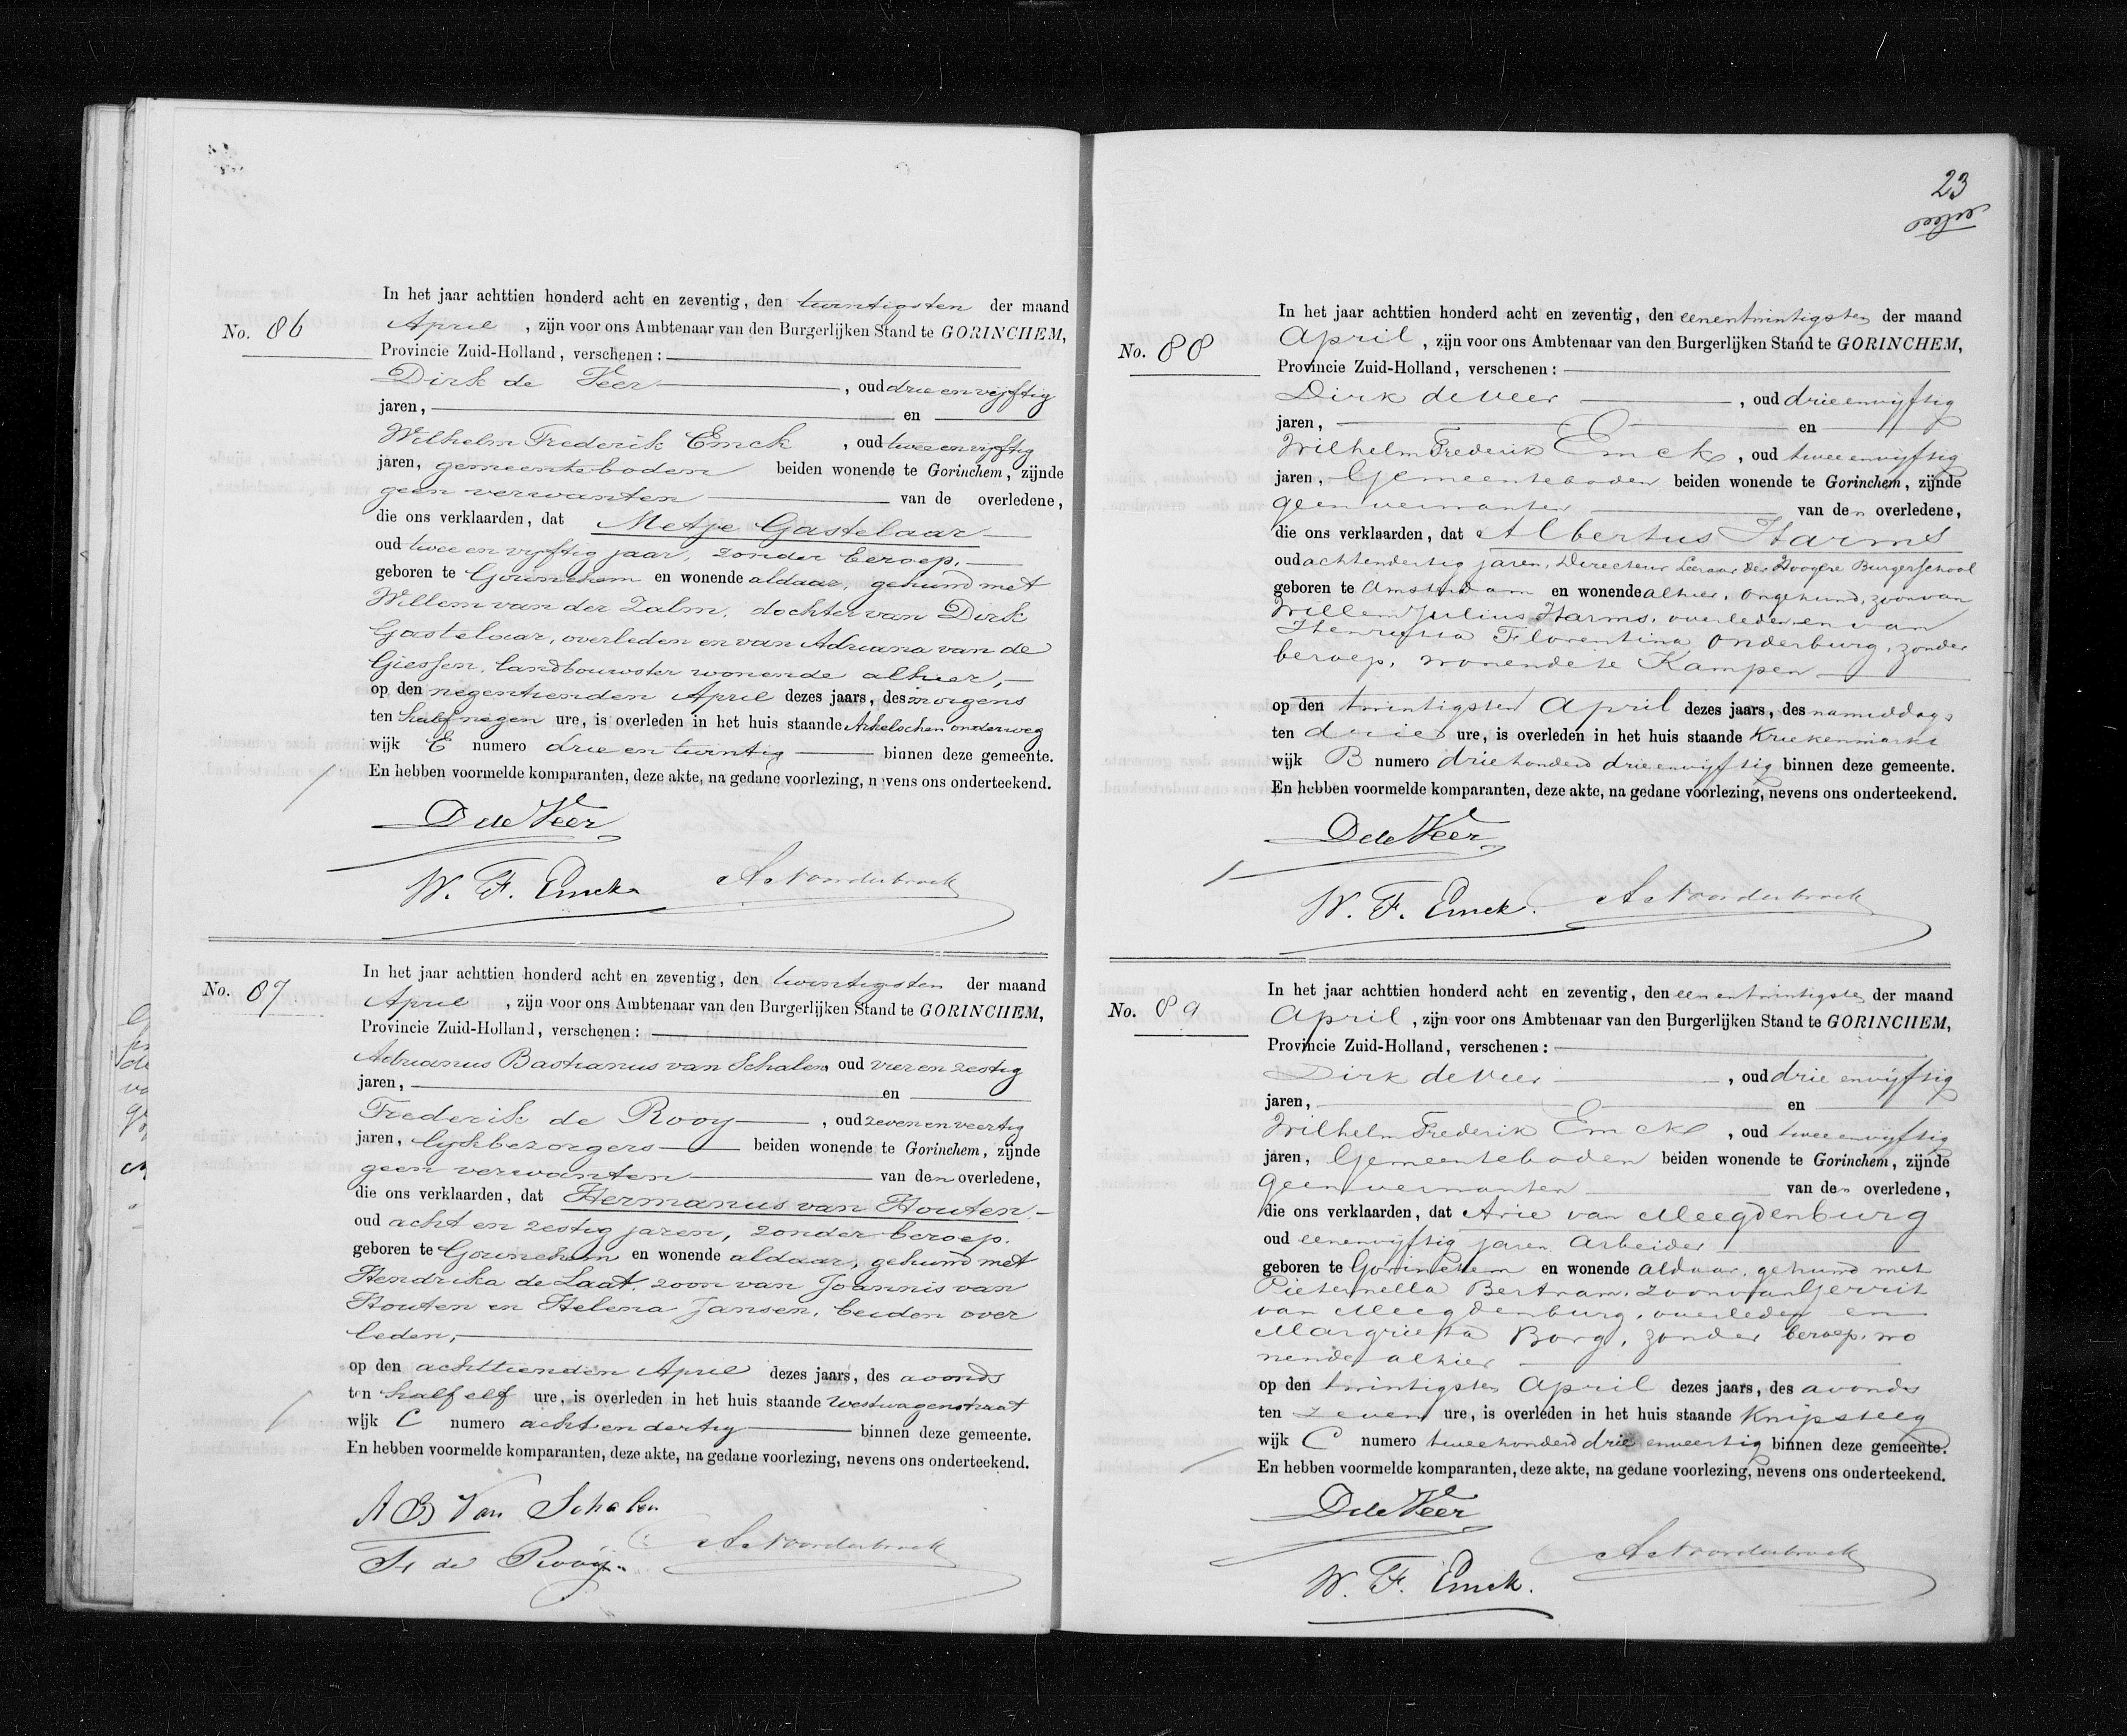 No. 86
In het jaar achttien honderd acht en zeventig, den twintigsten der maand
April , zijn voor ons Ambtenaar van den Burgerlijken Stand te GORINCHEM,
Provincie Zuid-Holland, verschenen:
Dirk de Veer , oud drie en vijftig
jaren, en
Wilhelm Frederik Emck , oud twee en vijftig
jaren, gemeenteboden beiden wonende te Gorinchem, zijnde
geen verwanten van de overledene,
die ons verklaarden, dat Metje Gastelaar
oud twee en vijftig jaar, zonder beroep,
geboren te Gorinchem en wonende aldaar, gehuwd met
Willem van der Zalm, dochter van Dirk
Gastelaar, overleden en van Adriana van de
Giessen, landbouwster wonende alhier,
op den negentienden April dezes jaars, des morgens
ten half negen ure, is overleden in het huis staande Arkelschen onderweg
wijk E numero drie en twintig binnen deze gemeente.
En hebben voormelde komparanten, deze akte, na gedane voorlezing, nevens ons onderteekend.
D de Veer
W. F. Emck A Noorderbroek
No. 87
In het jaar achttien honderd acht en zeventig, den twintigsten der maand
April , zijn voor ons Ambtenaar van den Burgerlijken Stand te GORINCHEM,
Provincie Zuid-Holland, verschenen:
Adrianus Bastianus van Schalen oud vier en zestig
jaren, en
Frederik de Rooy , oud zeven en veertig
jaren, lijkbezorgers beiden wonende te Gorinchem, zijnde
geen verwanten van den overledene,
die ons verklaarden, dat Hermanus van Houten
oud acht en zestig jaren, zonder beroep,
geboren te Gorinchem en wonende aldaar, gehuwd met
Hendrika de Laat, zoon van Joannis van
Houten en Helena Jansen, beiden over
leden,
op den achttienden April dezes jaars, des avonds
ten half elf ure, is overleden in het huis staande Westwagenstraat
wijk C numero acht en dertig binnen deze gemeente.
En hebben voormelde komparanten, deze akte, na gedane voorlezing, nevens ons onderteekend.
A B Van Schalen
F de Rooy. A Noorderbroek
23
No. 88
In het jaar achttien honderd acht en zeventig, den eenentwintigsten der maand
April , zijn voor ons Ambtenaar van den Burgerlijken Stand te GORINCHEM,
Provincie Zuid-Holland, verschenen:
Dirk de Veer , oud drieenvijftig
jaren, en
Wilhelm Frederik Emck , oud tweeenvijftig
jaren, Gemeenteboden beiden wonende te Gorinchem, zijnde
geen verwanten van den overledene,
die ons verklaarden, dat Albertus Harms
oud achtendertig jaren, Directeur Leeraar der Hoogere Burgerschool
geboren te Amsterdam en wonende alhier, ongehuwd, zoon van
Willem Julius Harms, overleden en van
Henrietta Florentina Onderburg, zonder
beroep, wonende te Kampen
op den twintigsten April dezes jaars, des namiddags
ten drie ure, is overleden in het huis staande Kriekenmarkt
wijk B numero driehonderd drieenvijftig binnen deze gemeente.
En hebben voormelde komparanten, deze akte, na gedane voorlezing, nevens ons onderteekend.
D de Veer
W. F. Emck. A Noorderbroek
No. 89
In het jaar achttien honderd acht en zeventig, den eenentwintigsten der maand
April , zijn voor ons Ambtenaar van den Burgerlijken Stand te GORINCHEM,
Provincie Zuid-Holland, verschenen:
Dirk de Veer , oud drieenvijftig
jaren, en
Wilhelm Frederik Emck , oud tweeenvijftig
jaren, Gemeenteboden beiden wonende te Gorinchem, zijnde
geen verwanten van den overledene,
die ons verklaarden, dat Arie van Meegdenburg
oud eenenvijftig jaren, Arbeider
geboren te Gorinchem en wonende aldaar, gehuwd met
Pieternella Bertram, zoon van Gerrit
van Meegdenburg, overleden en
Margrieta Borg, zonder beroep, wo
nende alhier
op den twintigsten April dezes jaars, des avonds
ten zeven ure, is overleden in het huis staande Knipsteeg
wijk C numero tweehonderd drieenveertig binnen deze gemeente.
En hebben voormelde komparanten, deze akte, na gedane voorlezing, nevens ons onderteekend.
D de Veer
W. F. Emck. A Noorderbroek